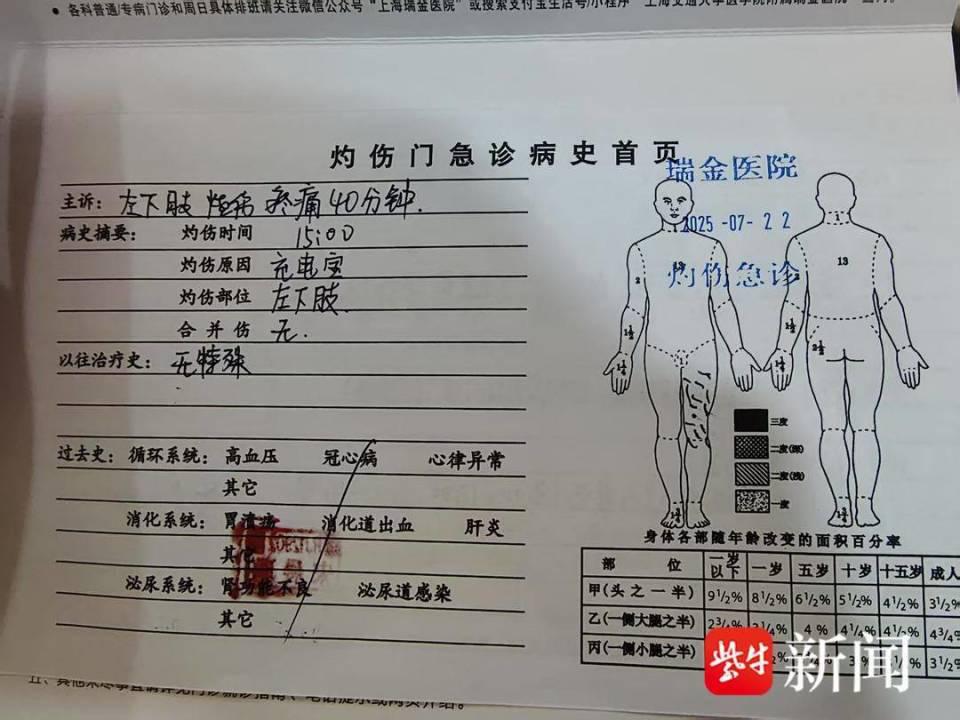 各科普通/专病门诊和周日具体排班请关注微信公众号“上海瑞金医院”或搜索支付宝生活号/小程序
灼伤门急诊病史首页
瑞金医院
2025-07-22
灼伤急诊
主诉: 左下肢 烧伤 疼痛 40分钟.
病史摘要: 灼伤时间 15:00
灼伤原因 充电宝
灼伤部位 左下肢.
合并伤 无.
以往治疗史: 无特殊
过去史: 循环系统: 高血压 冠心病 心律异常
其它
消化系统: 胃溃疡 消化道出血 肝炎
其它
泌尿系统: 肾功能不良 泌尿道感染
其它
13
13
2
1½
1½
2½
1
三度
二度(深)
二度(浅)
一度
身体各部随年龄改变的面积百分率
部位 一岁以下 一岁 五岁 十岁 十五岁 成人
甲(头之一半) 9½% 8½% 6½% 5½% 4½% 3½%
乙(一侧大腿之半) 2¾% 3¼% 4% 4¼% 4½% 4¾%
丙(一侧小腿之半) 3½%
紫牛新闻